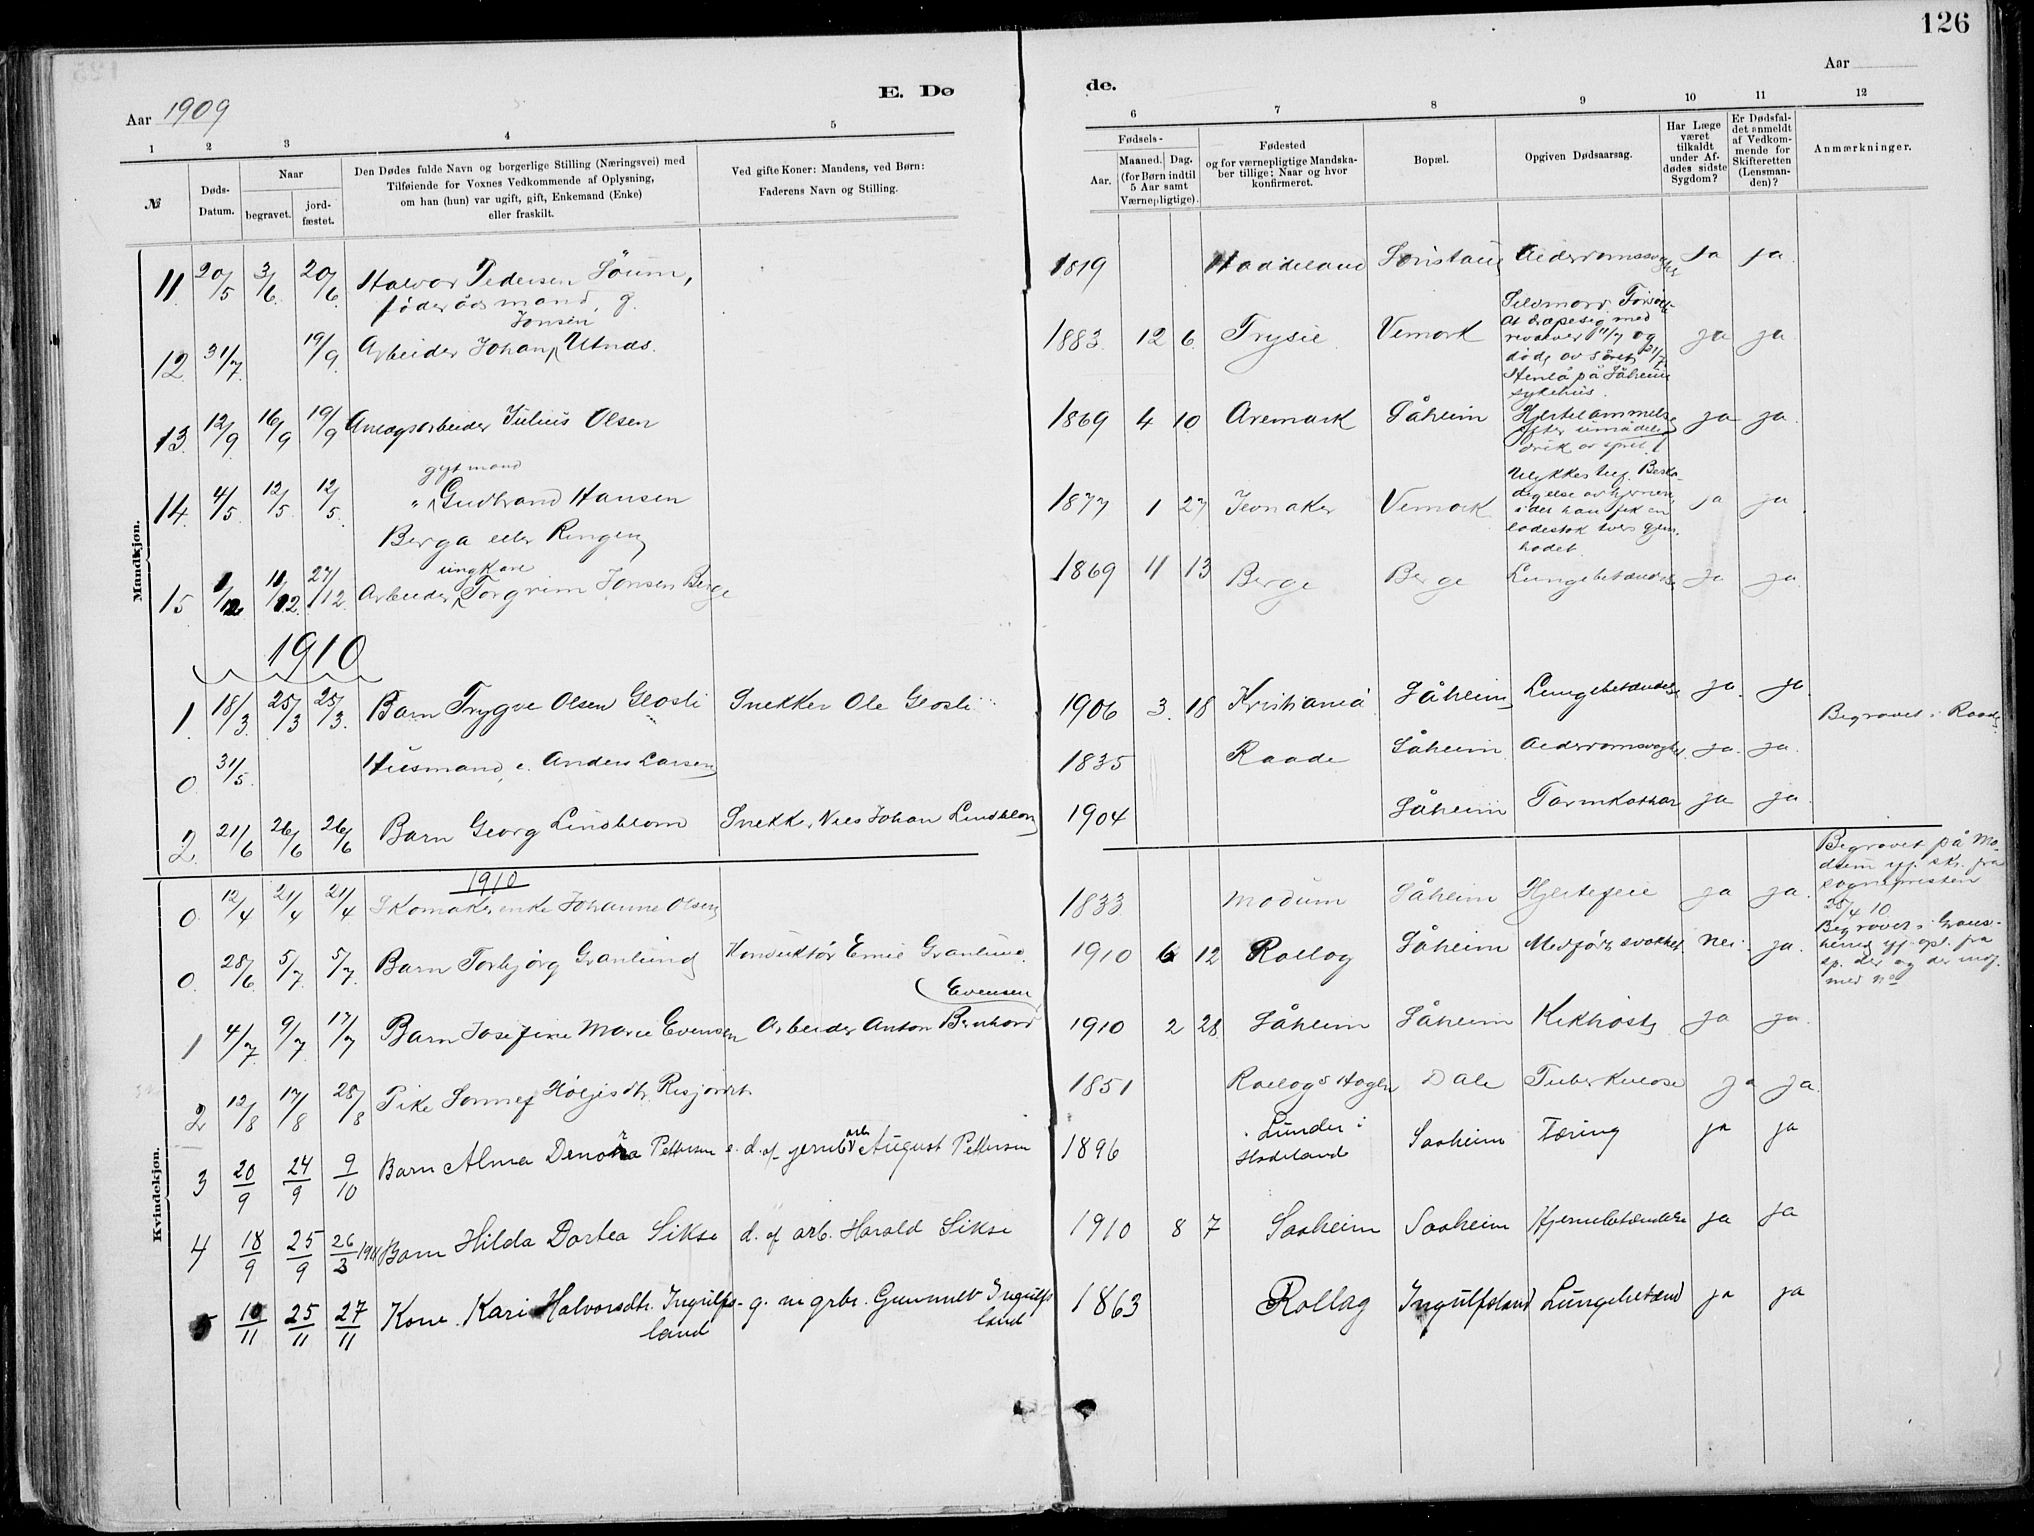 126
Aar 1909
E. Dø
de.
Aar
1 2 3 4 5 6 7 8 9 10 11 12
№
Døds-
Datum.
Naar
begravet.
jord-
fæstet.
Den Dødes fulde Navn og borgerlige Stilling (Næringsvei) med
Tilføiende for Voxnes Vedkommende af Oplysning,
om han (hun) var ugift, gift, Enkemand (Enke)
eller fraskilt.
Ved gifte Koner: Mandens, ved Børn:
Faderens Navn og Stilling.
Fødsels-
Aar.
Maaned. Dag.
(for Børn indtil
5 Aar samt
Værnepligtige).
Fødested
og for værnepligtige Mandska-
ber tillige: Naar og hvor
konfirmeret.
Bopæl.
Opgiven Dødsaarsag.
Har Læge
været
tilkaldt
under Af-
dødes sidste
Sygdom?
Er Dødsfal-
det anmeldt
af Vedkom-
mende for
Skifteretten
(Lensman-
den)?
Anmærkninger.
Mandkjøn.
11. 20/5 3/6. 20/6. Halvor Pedersen 1819 Ja ja.
føderådsmand, g.
Jonsen
12. 31/7. 19/9. Arbeider Johan Utnæs. 1883. 12 6. Trysil Vemork ja ja.
Selvmord. Forsøkte
At dræpe sig med
revolver 11/7 og
døde av såret 31/7.
Henlå på Såheim
sykehus.
13. 12/9 16/9 19/9 Anlægsarbeider Julius Olsen 1869 4 10. Aremark Såheim ja ja.
drik av sprit.
gift mand
14. 4/5. 12/5. 12/5. " Gudbrand Hansen 1877 1 27 Jevnaker Vemork ja ja
Berga eller Ringen
i det han fik en
ladestok tvers gjen.
hodet.
ungkar
15. 1/12 11/12. 27/12. Arbeider Torgrim Jonsen Berge 1869 11 13 Berge Berge Lungebetændelse Ja ja.
1910
1. 18/3. 25/3 25/3. Barn Trygve Olsen Glosli Snekker Ole Glosli 1906 3. 18 Kristiania Såheim Lungebetændelse ja. ja.
0. 31/5. Husmand, e. Anders Larsen 1835 Raade Såheim Alderdomsvaghet ja. ja. Begravet i Raade
2. 21/6 26/6 26/6 Barn Georg Lindblom Snekk. Nils Johan Lindblom 1904 Såheim Tarmkatharr ja ja.
Kvindekjøn.
1910
0. 12/4 21/4 21/4 Skomakerenke Johanne Olsen 1833. Modum Såheim Hjertefeil ja ja.
Begravet på Mo-
dum if. skr. fra
sognepresten
25/4 10
0. 28/6 5/7. 5/7. Barn Torbjørg Granlund Konduktør Emil Granlund. 1910 6 12 Rollag Såheim Medfødt svakhet nei. ja.
Evensen
1 4/7. 9/7. 17/7 Barn Josefine Marie Evensen Arbeider Anton Bernhard 1910 2 28. Såheim Såheim Kikhoste ja ja.
2 12/8 17/8 28/8 Pike Sønnef Høljesdtr. Risjordet 1851 Dale Tuberkulose ja ja.
3 20/9 24/9 9/10 Barn Alma Denora Pettersen d. af jernb. arb. August Pettersen 1896 Lunder i
Hadeland Saaheim Tæring ja ja
4 18/9 25/9 26/3 1911 Barn Hilda Dortea Sikse d. af arb. Harald Sikse 1910 8 7 Saaheim Saaheim Hjernebetændelse ja ja
5 10/11 25/11 27/11 Kone. Kari Halvorsdtr. Ingulfs- g. m grbr. Gunnulv Ingulfs 1863 Rollag Ingulfsland Lungebetænd ja ja
land land